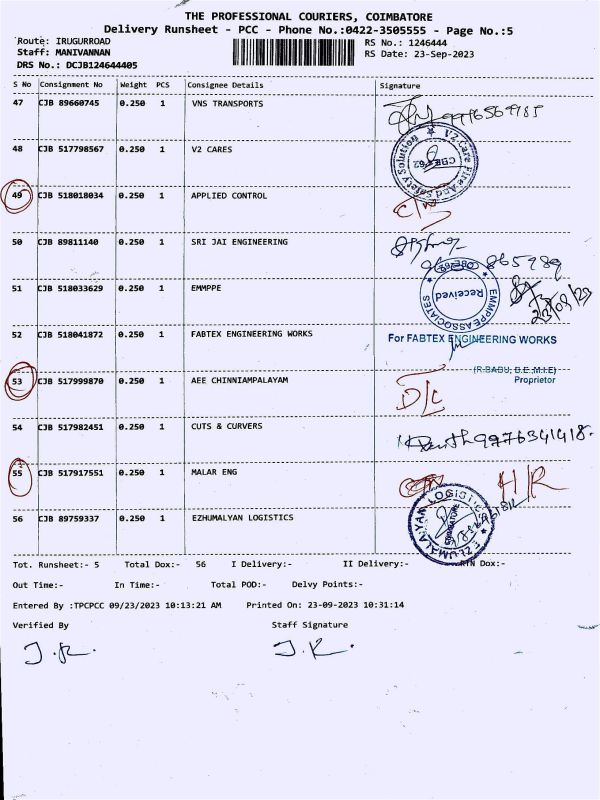 THE PROFESSIONAL COURIERS, COIMBATORE
Delivery Runsheet - PCC - Phone No.:0422-3505555 - Page No.:5
Route: IRUGURROAD
Staff: MANIVANNAN
DRS No.: DCJB124644405
RS No.: 1246444
RS Date: 23-Sep-2023
S No Consignment No Weight PCS Consignee Details Signature
47 CJB 89660745 0.250 1 VNS TRANSPORTS
48 CJB 517798567 0.250 1 V2 CARES
V2 Care Fire And Safety Solution
CBE-62
49 CJB 518018034 0.250 1 APPLIED CONTROL
50 CJB 89811140 0.250 1 SRI JAI ENGINEERING
51 CJB 518033629 0.250 1 EMMPPE
EMMPPEASSOCIATES
Received
23/09/23
52 CJB 518041872 0.250 1 FABTEX ENGINEERING WORKS
For FABTEX ENGINEERING WORKS
(R.BABU, B.E.,M.I.E)
Proprietor
53 CJB 517999870 0.250 1 AEE CHINNIAMPALAYAM
D/C
54 CJB 517982451 0.250 1 CUTS & CURVERS
9976341418.
55 CJB 517917551 1 0.250 MALAR ENG
H/R
56 CJB 89759337 0.250 1 EZHUMALYAN LOGISTICS
EZLUMALAYAN LOGISTIC
COIMBATORE
Tot. Runsheet:- 5 Total Dox:- 56 I Delivery:- II Delivery:- RTN Dox:-
Out Time:- In Time:- Total POD:- Delvy Points:-
Entered By :TPCPCC 09/23/2023 10:13:21 AM Printed On: 23-09-2023 10:31:14
Verified By Staff Signature
J.R. J.R.